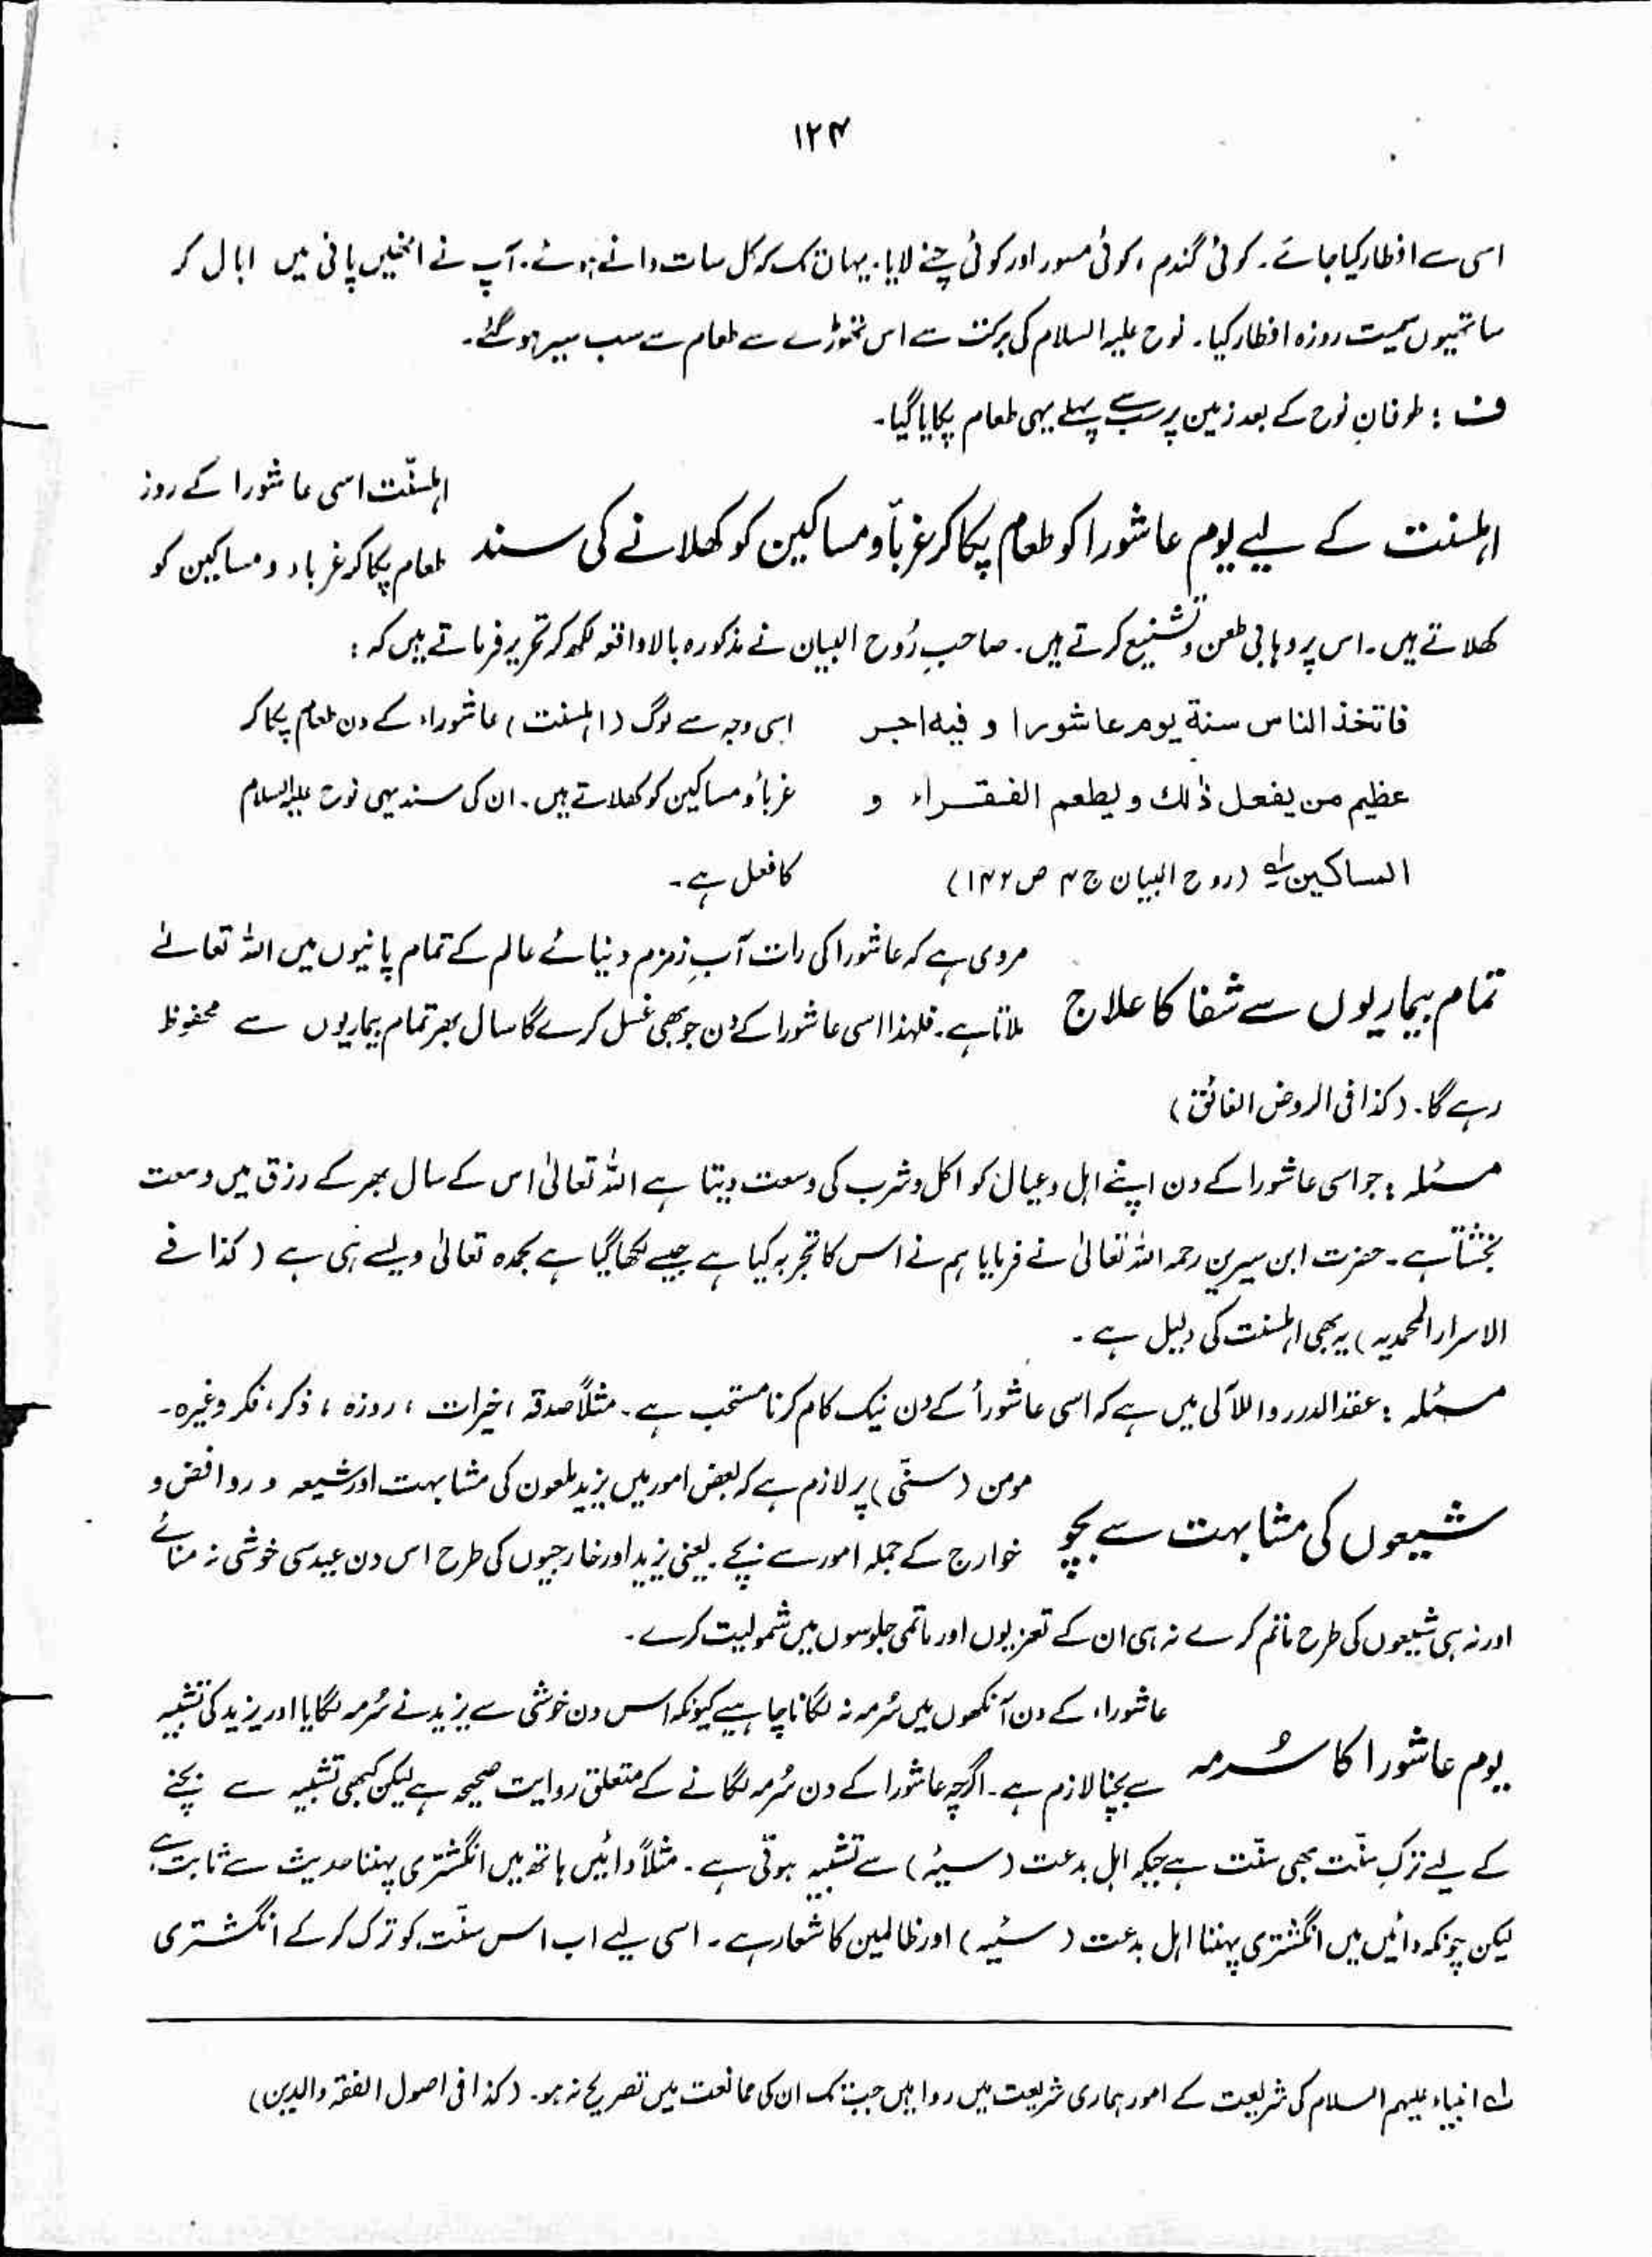 ۱۲۴
اسی سے افطار کیا جائے۔ کوئی گندم، کوئی مسور اور کوئی چنے لایا۔ یہاں تک کہ کل سات دانے ہوئے۔ آپ نے انھیں پانی میں ابال کر
ساتھیوں سمیت روزہ افطار کیا۔ نوح علیہ السلام کی برکت سے اس تھوڑے سے طعام سے سب سیر ہو گئے۔
ف : طوفانِ نوح کے بعد زمین پر سب سے پہلے یہی طعام پکایا گیا۔
اہلسنت کے لیے یوم عاشورا کو طعام پکا کر غرباؔ و مساکین کو کھلانے کی سند
اہلسنّت اسی عاشورا کے روز
طعام پکا کر غرباء و مساکین کو
کھلاتے ہیں۔ اس پر وہابی طعن و تشنیع کرتے ہیں۔ صاحبِ رُوح البیان نے مذکورہ بالا واقعہ لکھ کر تحریر فرماتے ہیں کہ :
فاتخذ الناس سنة يوم عاشورا و فيه اجر
عظيم من يفعل ذٰلك و يطعم الفقراء و
المساكين لہ (روح البیان ج ۴ ص ۱۴۲)
اسی وجہ سے لوگ (اہلسنت) عاشوراء کے دن طعام پکا کر
غرباؑ و مساکین کو کھلاتے ہیں۔ ان کی سند یہی نوح علیہ السلام
کا فعل ہے۔
تمام بیماریوں سے شفا کا علاج
مروی ہے کہ عاشورا کی رات آبِ زمزم دنیائے عالم کے تمام پانیوں میں اللہ تعالےٰ
ملاتا ہے۔ فلہٰذا اسی عاشورا کے دن جو بھی غسل کرے گا سال بھر تمام بیماریوں سے محفوظ
رہے گا۔ (کذا فی الروض الفائق)
مسئلہ : جو اسی عاشورا کے دن اپنے اہل و عیال کو اکل و شرب کی وسعت دیتا ہے اللہ تعالیٰ اس کے سال بھر کے رزق میں وسعت
بخشتا ہے۔ حضرت ابن سیرین رحمہ اللہ تعالیٰ نے فرمایا ہم نے اس کا تجربہ کیا ہے جیسے لکھا گیا ہے بحمدہ تعالیٰ ویسے ہی ہے (کذا فے
الاسرار المحمدیہ) یہ بھی اہلسنت کی دلیل ہے۔
مسئلہ : عقد الدرر و اللآلی میں ہے کہ اسی عاشوراُ کے دن نیک کام کرنا مستحب ہے۔ مثلاً صدقہ، خیرات، روزہ، ذکر، فکر وغیرہ۔
شیعوں کی مشابہت سے بچو
مومن (سنّی) پر لازم ہے کہ بعض امور میں یزید ملعون کی مشابہت اور شیعہ و روافض و
خوارج کے جملہ امور سے بچے۔ یعنی یزید اور خارجیوں کی طرح اس دن عید سی خوشی نہ منائے
اور نہ ہی شیعوں کی طرح ماتم کرے نہ ہی ان کے تعزیوں اور ماتمی جلوسوں میں شمولیت کرے۔
یوم عاشورا کا سُرمہ
عاشوراء کے دن آنکھوں میں سُرمہ نہ لگانا چاہیے کیونکہ اس دن خوشی سے یزید نے سُرمہ لگایا اور یزید کی تشبیہ
سے بچنا لازم ہے۔ اگرچہ عاشورا کے دن سُرمہ لگانے کے متعلق روایت صحیح ہے لیکن کبھی تشبیہ سے بچنے
کے لیے ترکِ سنّت بھی سنّت ہے جبکہ اہل بدعت (سیئہ) سے تشبیہ ہوتی ہے۔ مثلاً دائیں ہاتھ میں انگشتری پہننا حدیث سے ثابت ہے
لیکن چونکہ دائیں میں انگشتری پہننا اہل بدعت (سئیہ) اور ظالمین کا شعار ہے۔ اسی لیے اب اس سنّت کو ترک کر کے انگشتری
لہ انبیاء علیہم السلام کی شریعت کے امور ہماری شریعت میں روا ہیں جب تک ان کی ممانعت میں تصریح نہ ہو۔ (کذا فی اصول الفقہ والدین)